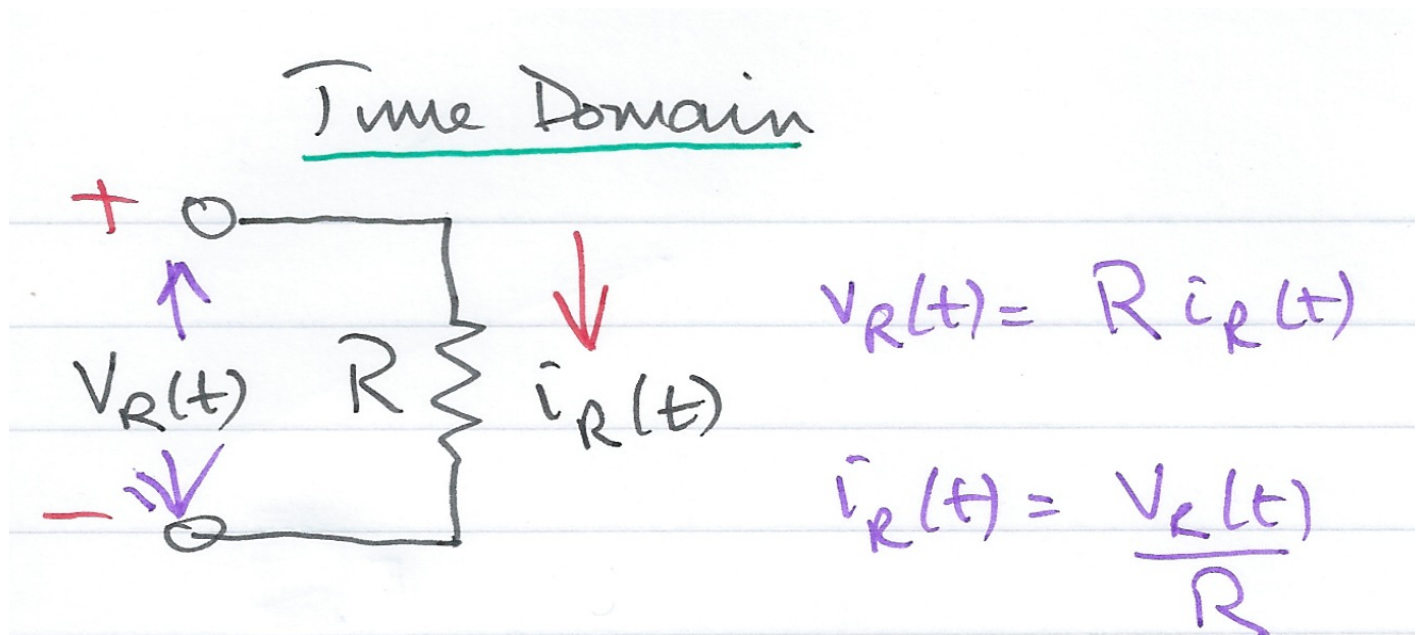 Time Domain
+
V_R(t)
R
i_R(t)
-
v_R(t) = R i_R(t)
i_R(t) = V_R(t) / R